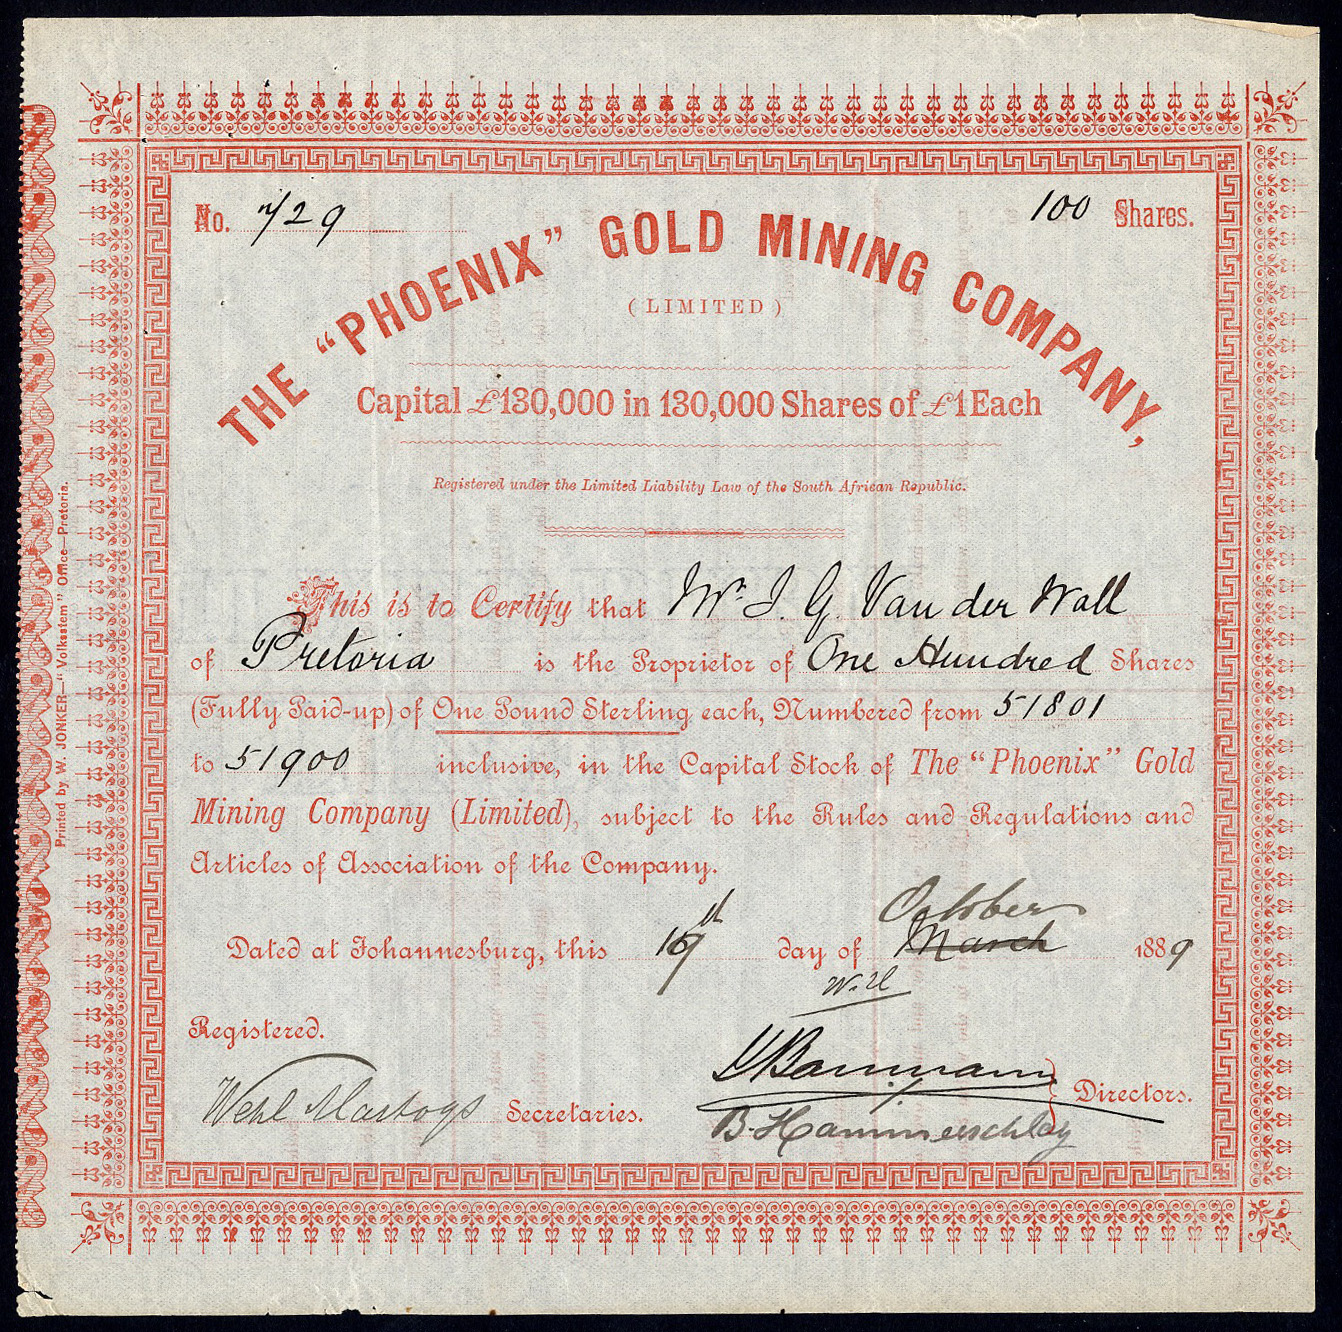 No. 729 100 Shares.
THE "PHOENIX" GOLD MINING COMPANY,
(LIMITED)
Capital £130,000 in 130,000 Shares of £1 Each
Registered under the Limited Liability Law of the South African Republic.
This is to Certify that Mr. J. G. Van der Wall
of Pretoria is the Proprietor of One Hundred Shares
(Fully Paid-up) of One Pound Sterling each, Numbered from 51801
to 51900 inclusive, in the Capital Stock of The "Phoenix" Gold
Mining Company (Limited), subject to the Rules and Regulations and
Articles of Association of the Company.
October
Dated at Johannesburg, this day of March 1889
Registered.
Secretaries.
Directors.
B. Hammerschlag
Printed by W. JONKER—"Volksstem" Office—Pretoria.